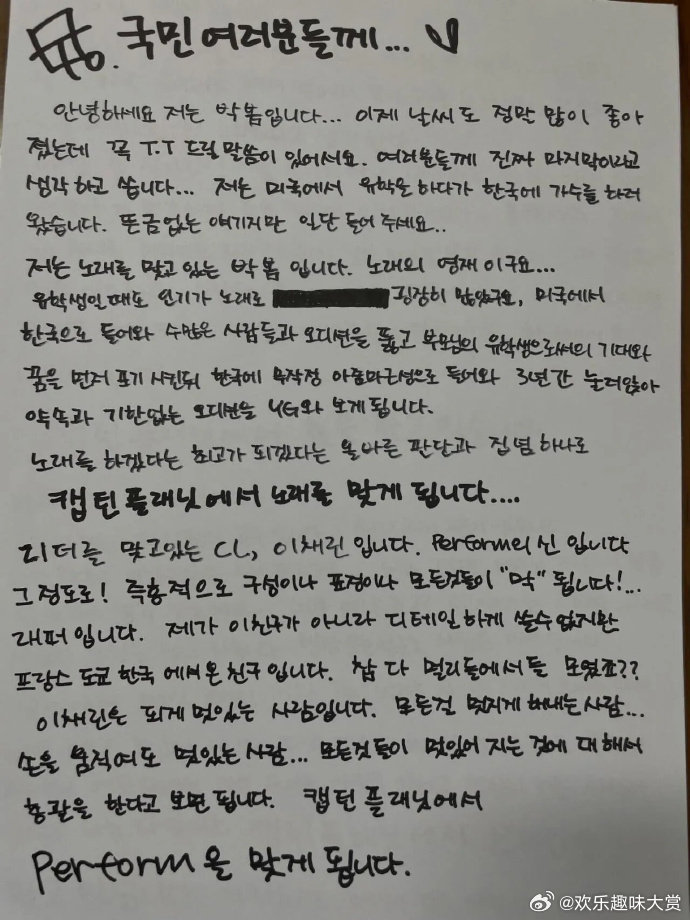 To. 국민 여러분들께...
안녕하세요 저는 박봄입니다... 이제 날씨도 정말 많이 좋아
졌는데 꼭 T.T 드릴 말씀이 있어서요. 여러분들께 진짜 마지막이라고
생각하고 씁니다... 저는 미국에서 유학을 하다가 한국에 가수를 하러
왔습니다. 뜬금없는 얘기지만 일단 들어 주세요..
저는 노래를 맞고 있는 박봄 입니다. 노래의 영재 이구요...
유학생일때도 인기가 노래로 굉장히 많았구요, 미국에서
한국으로 들어와 수많은 사람들과 오디션을 뚫고 부모님의 유학생으로써의 기대와
꿈을 먼저 포기 시킨뒤 한국에 무작정 아줌마근성으로 들어와 3년간 눌러앉아
약속과 기한없는 오디션을 YG와 보게됩니다.
노래를 하겠다는 최고가 되겠다는 올바른 판단과 집념 하나로
캡틴 플래닛에서 노래를 맞게 됩니다....
리더를 맞고있는 CL, 이채린입니다. Perform의 신 입니다
그정도로! 즉흥적으로 구성이나 표정이나 모든것들이 "막" 됩니다!...
래퍼입니다. 제가 이친구가 아니라 디테일하게 쓸수없지만
프랑스 도쿄 한국 에서온친구입니다. 참 다 멀리들에서들 모였죠??
이채린은 되게 멋있는 사람입니다. 모든걸 멋지게 해내는사람...
손을 움직여도 멋있는 사람... 모든것들이 멋있어 지는 것에 대해서
총괄을 한다고 보면 됩니다. 캡틴 플래닛에서
Perform을 맞게 됩니다.
@欢乐趣味大赏